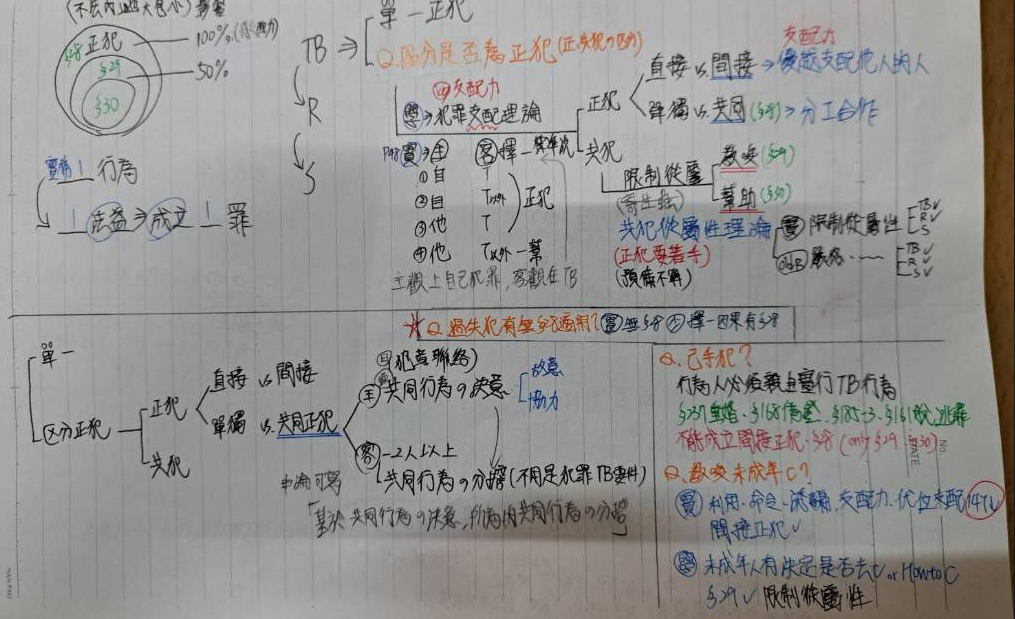 (不法內涵大包小)
§28 正犯
100%
§29
50%
§30
實務 1 行為
1 法益⇒成立 1 罪
TB ⇒
R
S
單一正犯
Q.區分是否為正犯(正、共犯の區分)
支配力
學⇒犯罪支配理論
正犯
直接 vs. 間接 → 優越支配他人的人
支配力
單獨 vs. 共同(§28) ⇒ 分工合作
共犯
限制從屬
(寄生蟲)
教唆(§29)
幫助(§30)
實⇒主 客擇一
①自 T
②自 T以外
③他 T
正犯
④他 T以外一幫
主觀上自己犯罪,客觀在TB
共犯從屬性理論
(正犯要著手)
(預備不算)
限制從屬性
TB✓
R✓
S
old
嚴格……
TB✓
R✓
S✓
☆Q.過失犯有無§28適用?實無§28 擇一因果有§28
單一
区分正犯
正犯
直接 vs 間接
單獨 vs. 共同正犯
共犯
主
犯意聯絡)
共同行為の決意
故意
協力
客
2人以上
共同行為の分擔(不用是犯罪TB要件)
申論可寫
「基於共同行為の決意,所為的共同行為の分擔」
Q.己手犯?
行為人必須親自實行TB行為
§237重婚、§168偽證、§185-3、§161脫逃罪
不能成立間接正犯、§28(only §29、§30)
Q.教唆未成年C?
實 利用、命令、誘騙,支配力、优位支配
間接正犯✓
未成年人有決定是否去C or How to C
§29✓ 限制從屬性
NO.
DATE